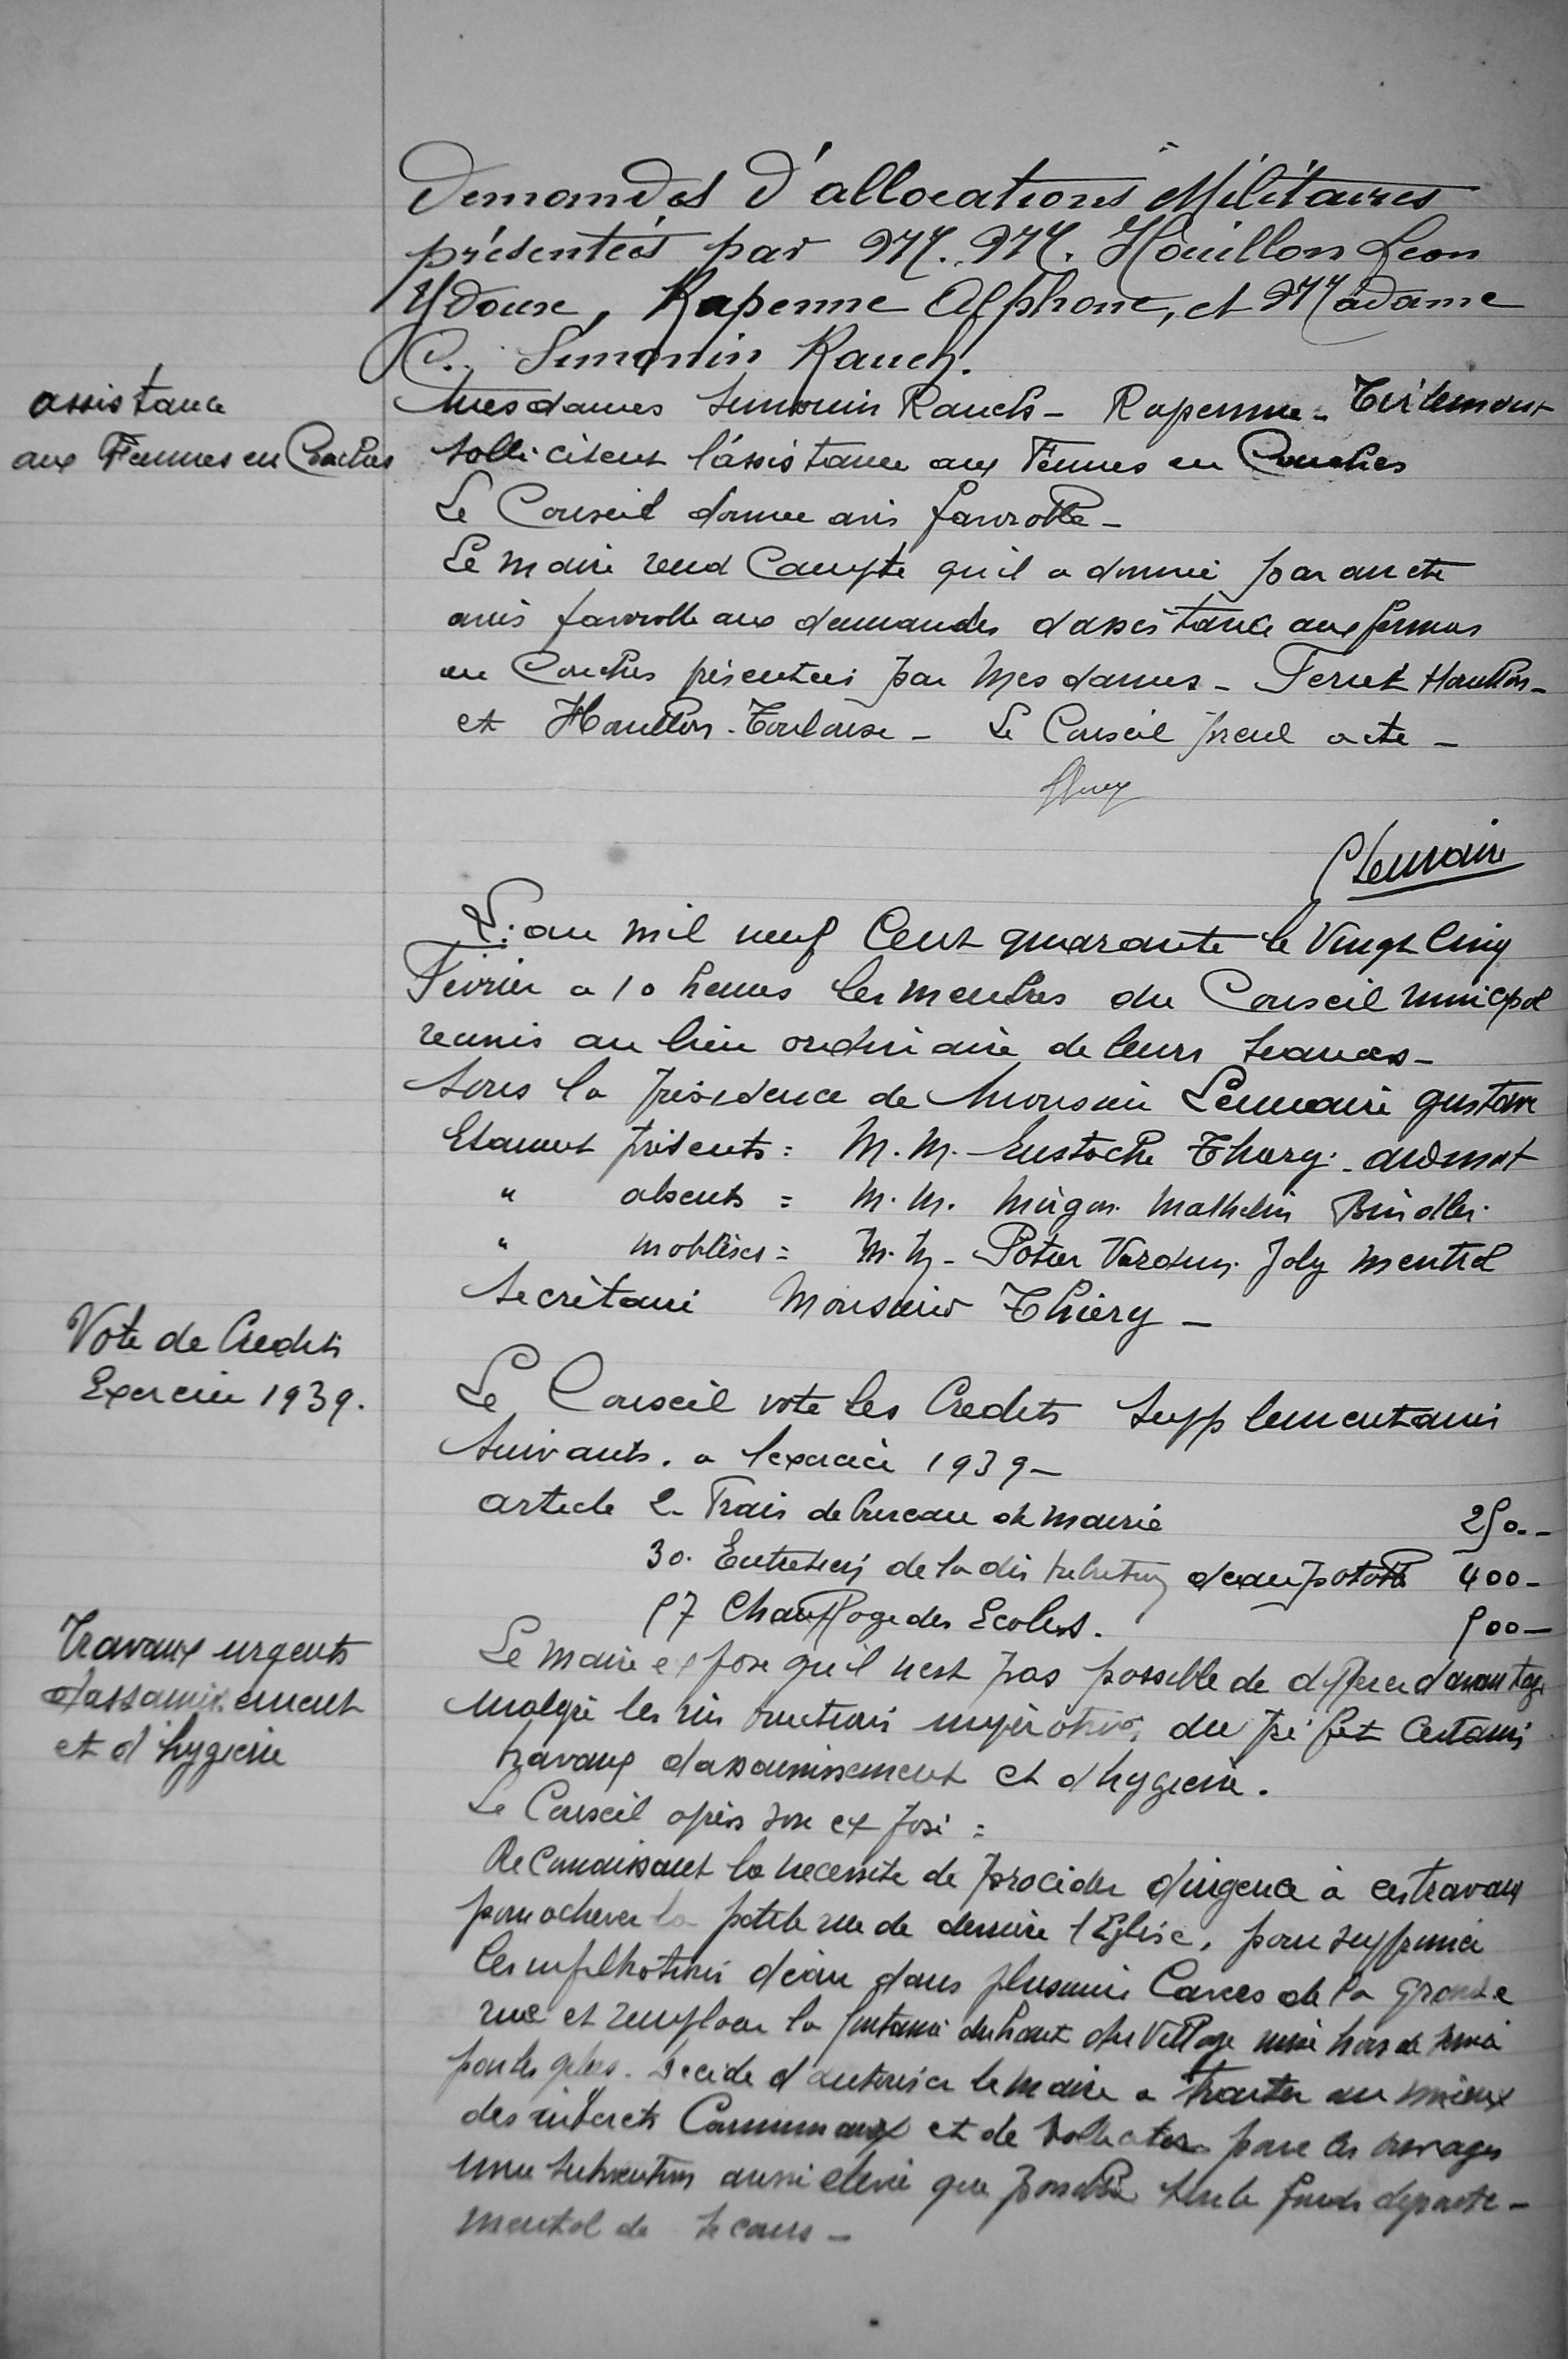 Demandes d'allocations Militaires
présentées par M. M. Houillon Leon
Ydoux, Rapenne Alphone, et Madame
C. Simonin Rauch.
assistance
aux Femmes en Couches
Mesdames Simonin Rauch - Rapenne - Tirlemont
sollicitent l'assistance aux Femmes en Couches
Le Conseil donne avis favorable -
Le maire rend Compte qu'il a donné par arreté
avis favorable aux demandes d'assistance aux femmes
en Couches présentées par Mesdames - Ferret Houillon -
et Houillon - Toulouse - Le Conseil prend acte -
Lemaire
L'an mil neuf Cent quarante le Vingt Cinq
Février a 10 heures les membres du Conseil municipal
reunis au lieu ordinaire de leurs seances -
sous la présidence de Monsieur Lemaire gustave
Etaient présents = M. M. Eustache Thiery - audinot
" absents = M. M. Mathelin Bindler.
" mobilisés = M. M - Potier Verdun. Joly mentrel
Secrétaire Monsieur Thiery -
Vote de Credits
Exercice 1939.
Le Conseil vote les Credits supplementaires
suivants. a l'exercice 1939 -
article 2 - Frais de bureau de mairie 250. -
30. Entretien de la distribution d'eau potable 400 -
57 Chauffage des Ecoles. 500 -
Travaux urgents
d'assainissement
et d'hygiene
Le maire expose qu'il n'est pas possible de differer davantage
malgré les instructions imperatives du préfet Certains
travaux d'assainissement et d'hygiene.
Le Conseil après son exposé =
Reconnaissant la necessite de procéder d'urgence à ces travaux
pour achever la petite rue de derrière l'Eglise, pour supprimer
les infiltrations d'eau dans plusieurs Caves de la Grande
rue et remplacer la fontaine du haut du Village mise hors de service
par les gelées. Decide d'autoriser le maire a traiter au mieux
des interets Communaux et de solliciter pour ces ouvrages
une subvention aussi elevée que possible sur le fonds departe-
mental de secours -